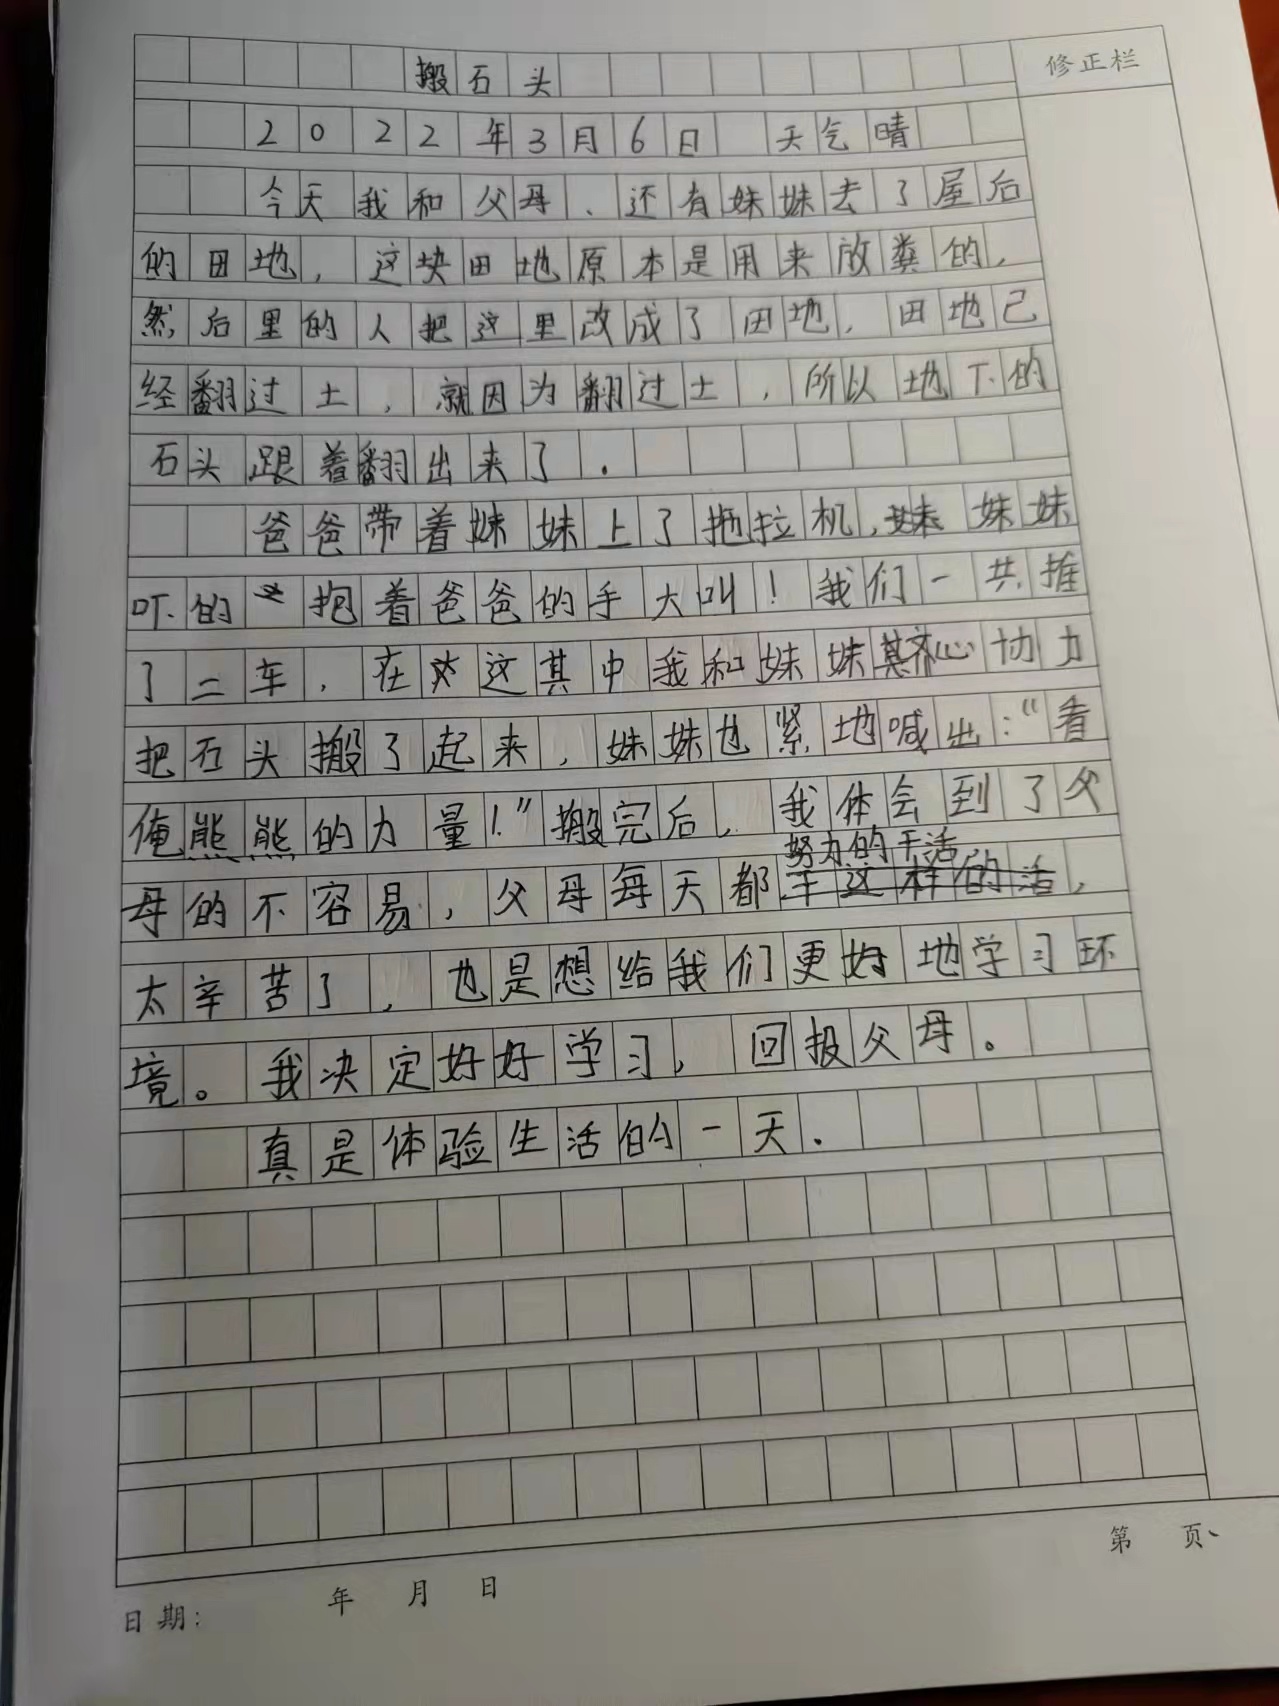 搬石头
修正栏
2022年3月6日 天气晴
今天我和父母、还有妹妹去了屋后
的田地，这块田地原本是用来放粪的，
然后里的人把这里改成了田地，田地已
经翻过土，就因为翻过土，所以地下的
石头跟着翻出来了.
爸爸带着妹妹上了拖拉机，妹妹
吓的抱着爸爸的手大叫！我们一共推
了二车，在这其中我和妹妹齐心协力
把石头搬了起来，妹妹也紧地喊出："看
俺熊熊的力量！"搬完后，我体会到了父
努力的干活
母的不容易，父母每天都干这样的活，
太辛苦了，也是想给我们更好地学习环
境。我决定好好学习，回报父母。
真是体验生活的一天.
第 页
日期： 年 月 日